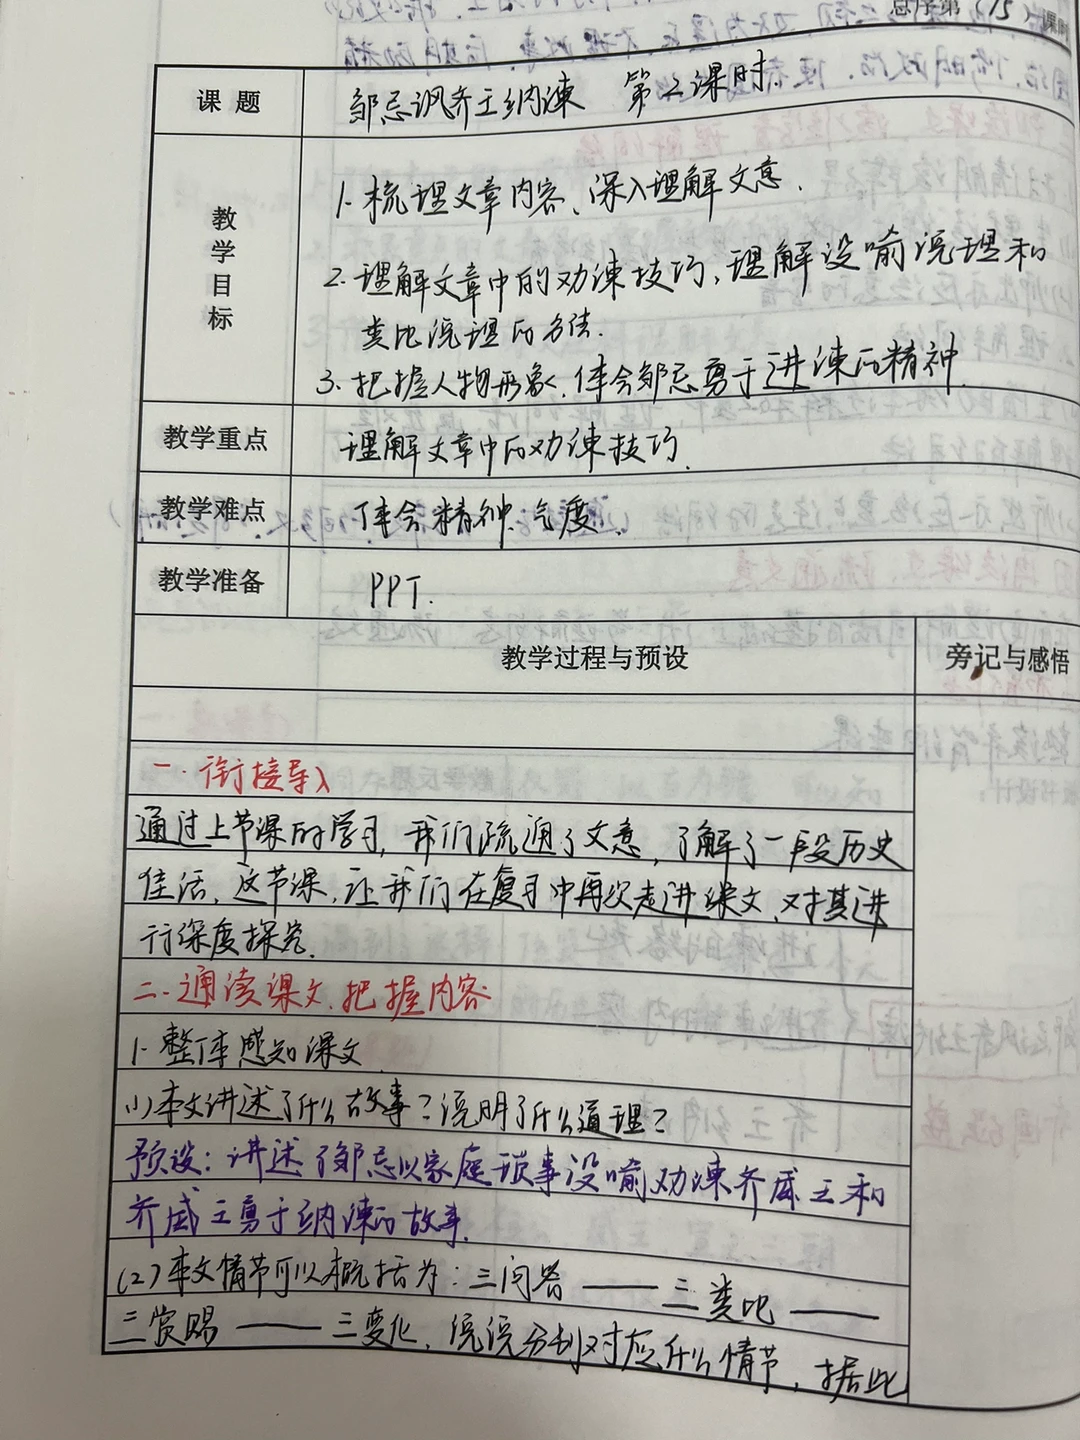 总序第（15）课时
课题 邹忌讽齐王纳谏 第2课时.
教学目标
1. 梳理文章内容、深入理解文意.
2. 理解文章中的劝谏技巧，理解设喻说理和
类比说理的方法.
3. 把握人物形象，体会邹忌勇于进谏的精神.
教学重点 理解文章中的劝谏技巧.
教学难点 体会精神.气度.
教学准备 PPT.
教学过程与预设 旁记与感悟
一.衔接导入
通过上节课的学习，我们疏通了文意，了解了一段历史
佳话，这节课，让我们在复习中再次走进课文，对其进
行深度探究.
二.通读课文.把握内容
1.整体感知课文
(1)本文讲述了什么故事？说明了什么道理？
预设：讲述了邹忌以家庭琐事设喻劝谏齐威王和
齐威王勇于纳谏的故事.
(2)本文情节可以概括为：三问答——三类比——
三赏赐——三变化，说说分别对应什么情节，据此